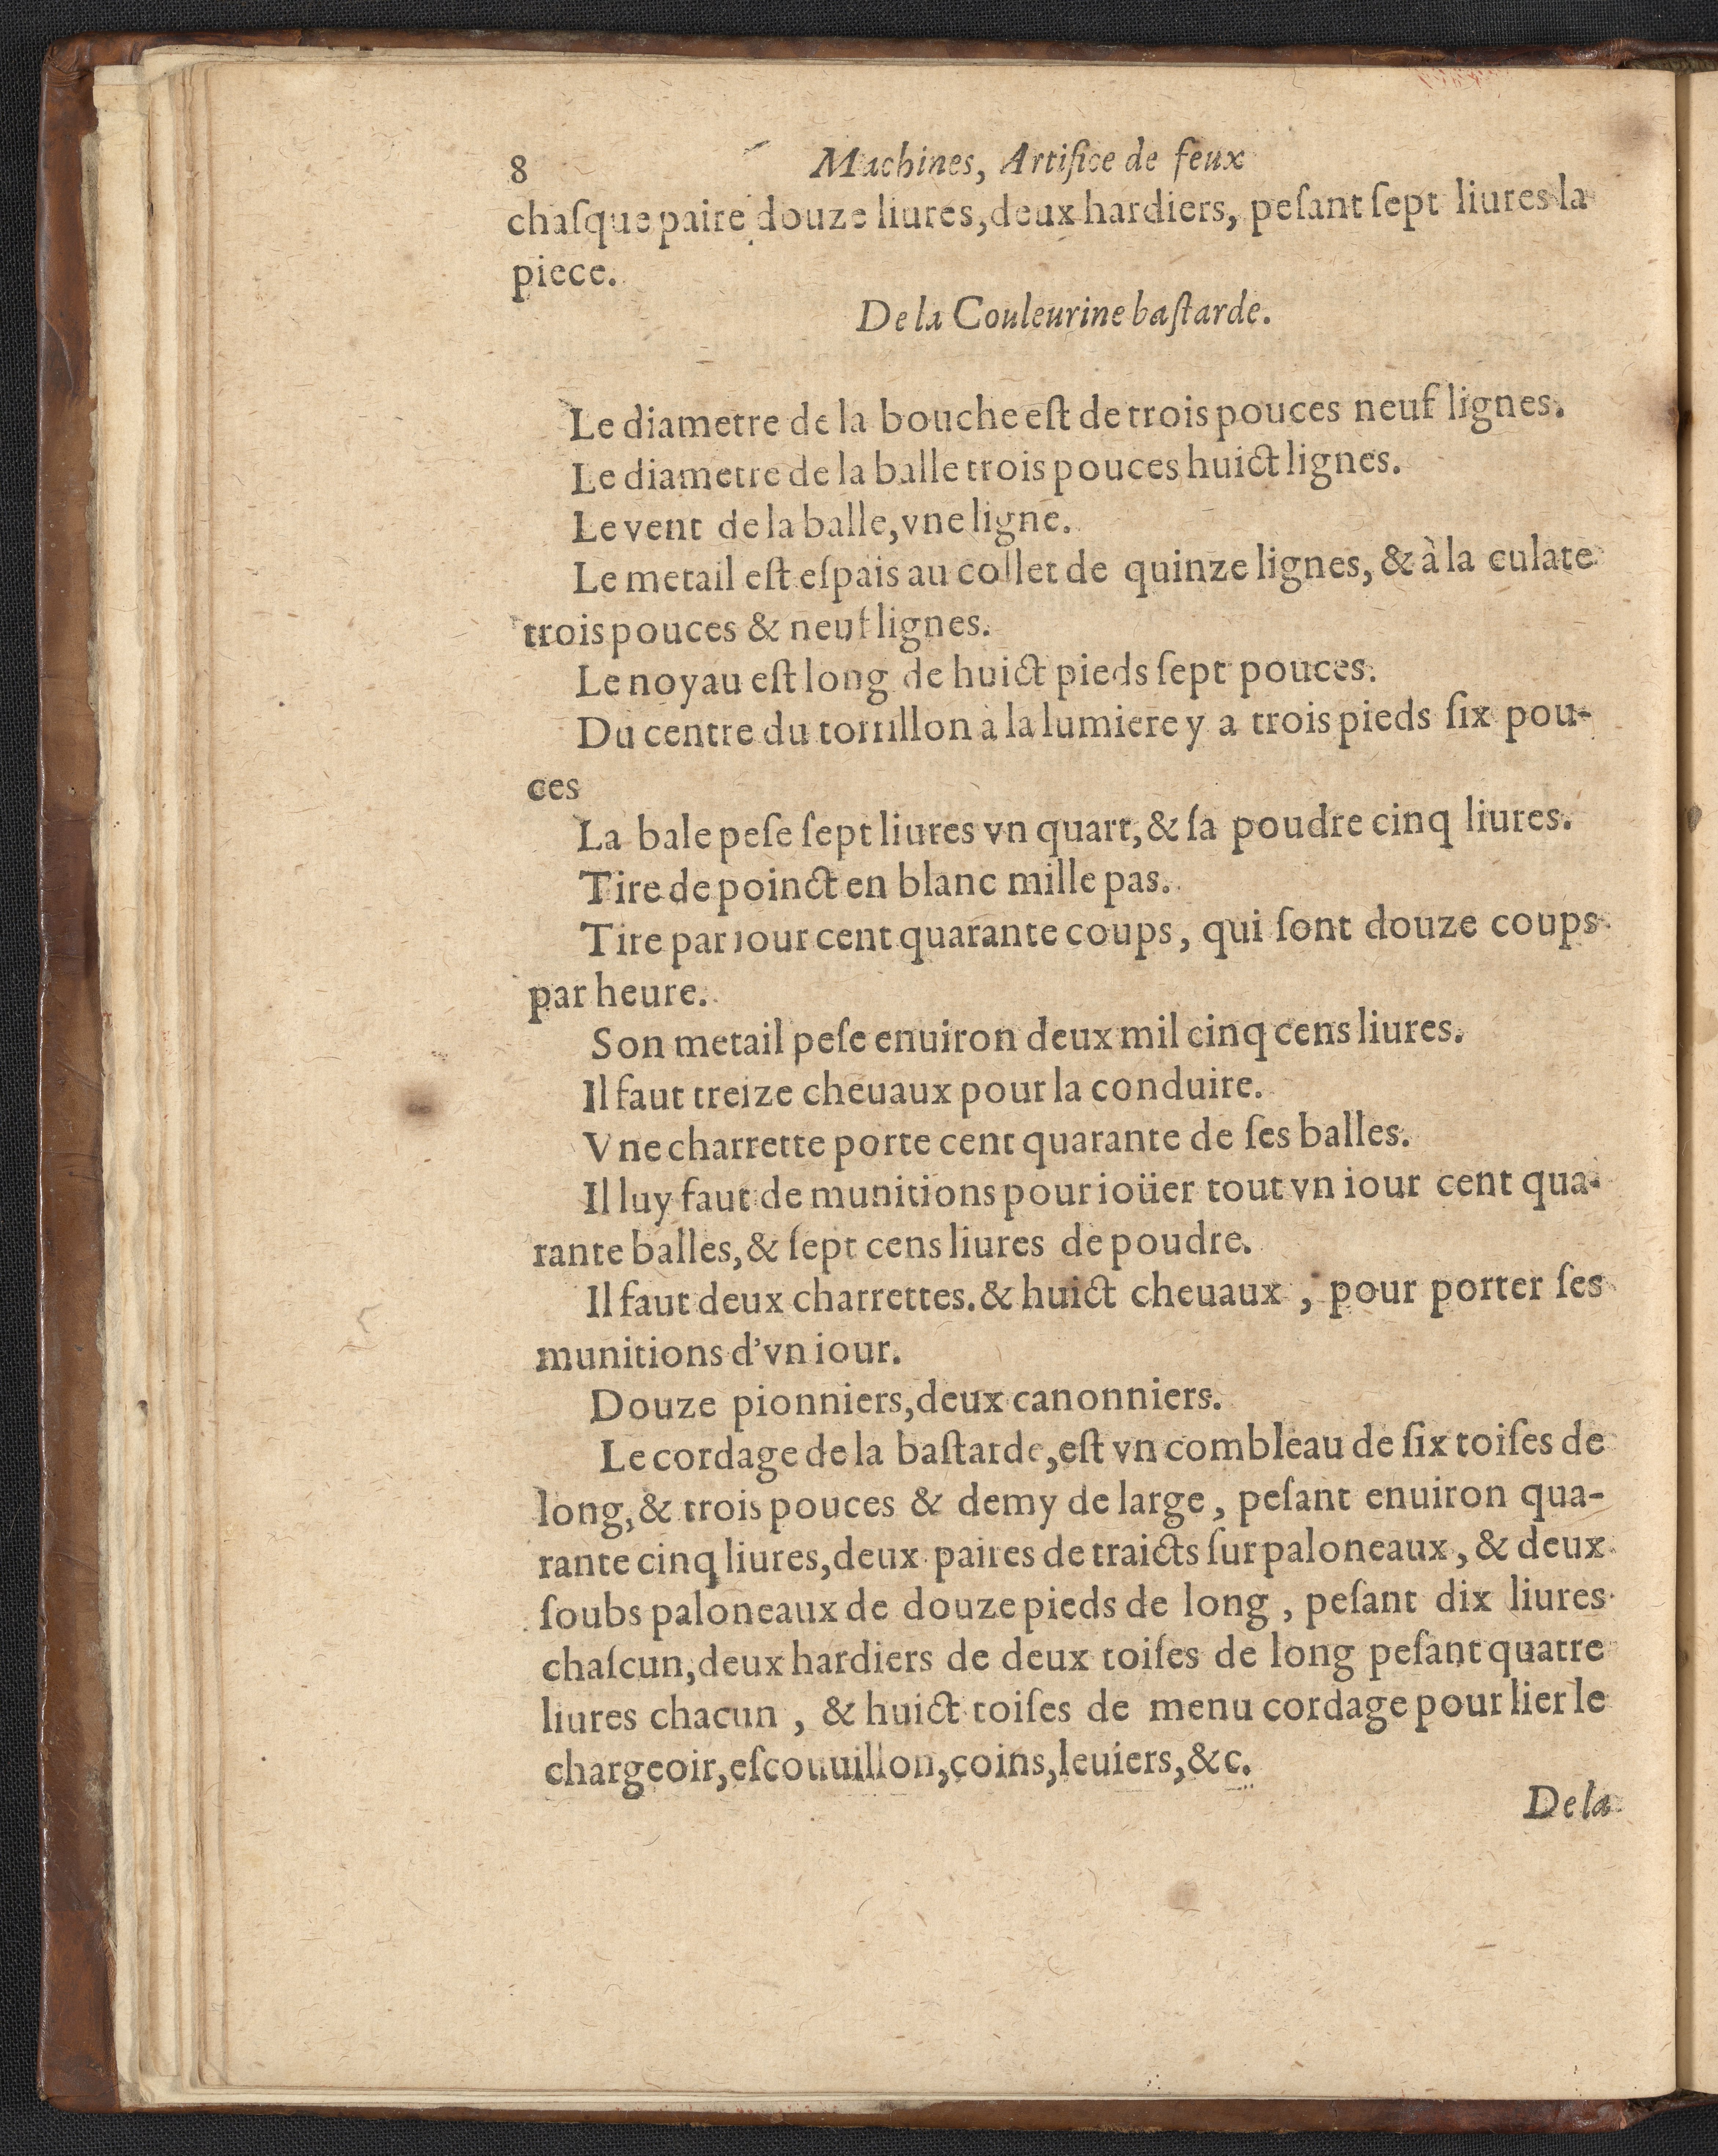 8 Machines, Artifice de feux
chaſque paire douze liures, deux hardiers, peſant ſept liures la
piece.
De la Couleurine baſtarde.
Le diametre de la bouche eſt de trois pouces neuf lignes.
Le diametre de la balle trois pouces huict lignes.
Le vent de la balle, vne ligne.
Le metail eſt eſpais au collet de quinze lignes, & à la culate
trois pouces & neuf lignes.
Le noyau eſt long de huict pieds ſept pouces.
Du centre du tortillon à la lumiere y a trois pieds ſix pou-
ces
La bale peſe ſept liures vn quart, & ſa poudre cinq liures.
Tire de poinct en blanc mille pas.
Tire par iour cent quarante coups, qui ſont douze coups
par heure.
Son metail peſe enuiron deux mil cinq cens liures.
Il faut treize cheuaux pour la conduire.
Vne charrette porte cent quarante de ſes balles.
Il luy faut de munitions pour ioüer tout vn iour cent qua-
rante balles, & ſept cens liures de poudre.
Il faut deux charrettes. & huict cheuaux, pour porter ſes
munitions d'vn iour.
Douze pionniers, deux canonniers.
Le cordage de la baſtarde, eſt vn combleau de ſix toiſes de
long, & trois pouces & demy de large, peſant enuiron qua-
rante cinq liures, deux paires de traicts ſur paloneaux, & deux
ſoubs paloneaux de douze pieds de long, peſant dix liures
chaſcun, deux hardiers de deux toiſes de long peſant quatre
liures chacun, & huict toiſes de menu cordage pour lier le
chargeoir, eſcouuillon, coins, leuiers, &c.
De la